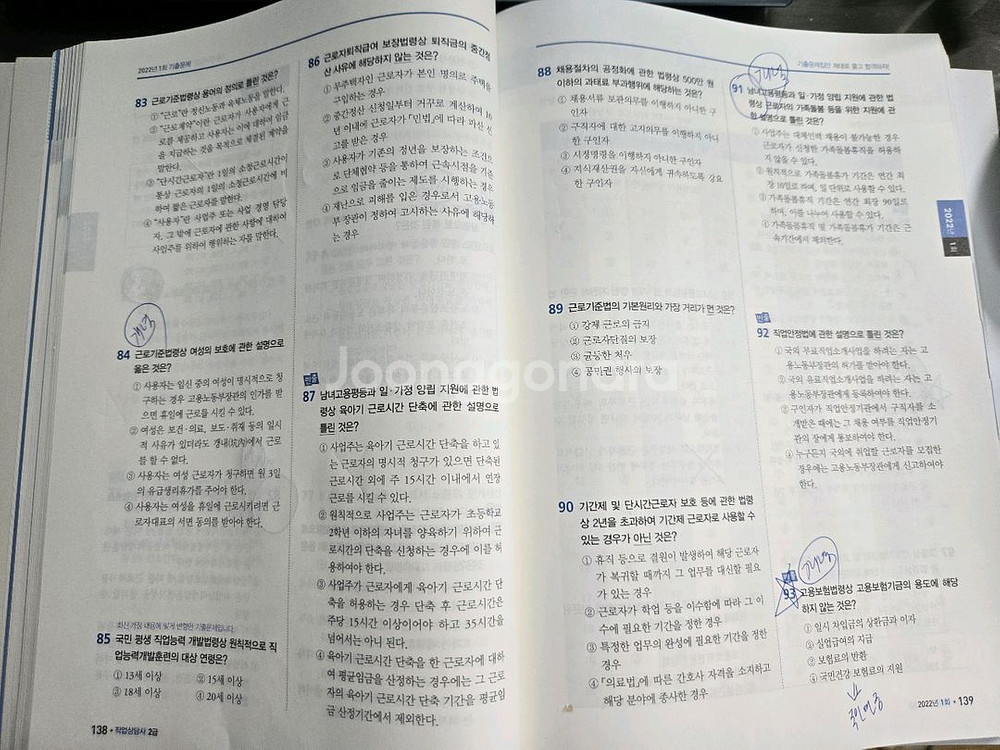 2022년 1회 기출문제
83 근로기준법령상 용어의 정의로 틀린 것은?
① "근로"란 정신노동과 육체노동을 말한다.
② "근로계약"이란 근로자가 사용자에게 근
로를 제공하고 사용자는 이에 대하여 임금
을 지급하는 것을 목적으로 체결된 계약을
말한다.
③ "단시간근로자"란 1일의 소정근로시간이
통상 근로자의 1일의 소정근로시간에 비
하여 짧은 근로자를 말한다.
④ "사용자"란 사업주 또는 사업 경영 담당
자, 그 밖에 근로자에 관한 사항에 대하여
사업주를 위하여 행위하는 자를 말한다.
개념
84 근로기준법령상 여성의 보호에 관한 설명으로
옳은 것은?
① 사용자는 임신 중의 여성이 명시적으로 청
구하는 경우 고용노동부장관의 인가를 받
으면 휴일에 근로를 시킬 수 있다.
② 여성은 보건·의료, 보도·취재 등의 일시
적 사유가 있더라도 갱내(坑內)에서 근로
를 할 수 없다.
③ 사용자는 여성 근로자가 청구하면 월 3일
의 유급생리휴가를 주어야 한다.
④ 사용자는 여성을 휴일에 근로시키려면 근
로자대표의 서면 동의를 받아야 한다.
최신 가정 내용에 맞게 변형한 기출문제입니다.
85 국민 평생 직업능력 개발법령상 원칙적으로 직
업능력개발훈련의 대상 연령은?
① 13세 이상 ② 15세 이상
③ 18세 이상 ④ 20세 이상
138 • 직업상담사 2급
86 근로자퇴직급여 보장법령상 퇴직금의 중간정
산 사유에 해당하지 않는 것은?
① 무주택자인 근로자가 본인 명의로 주택을
구입하는 경우
② 중간정산 신청일부터 거꾸로 계산하여 10
년 이내에 근로자가 「민법」에 따라 파산 선
고를 받은 경우
③ 사용자가 기존의 정년을 보장하는 조건으
로 단체협약 등을 통하여 근속시점을 기준
으로 임금을 줄이는 제도를 시행하는 경우
④ 재난으로 피해를 입은 경우로서 고용노동
부 장관이 정하여 고시하는 사유에 해당하
는 경우
빈출
87 남녀고용평등과 일·가정 양립 지원에 관한 법
령상 육아기 근로시간 단축에 관한 설명으로
틀린 것은?
① 사업주는 육아기 근로시간 단축을 하고 있
는 근로자의 명시적 청구가 있으면 단축된
근로시간 외에 주 15시간 이내에서 연장
근로를 시킬 수 있다.
② 원칙적으로 사업주는 근로자가 초등학교
2학년 이하의 자녀를 양육하기 위하여 근
로시간의 단축을 신청하는 경우에 이를 허
용하여야 한다.
③ 사업주가 근로자에게 육아기 근로시간 단
축을 허용하는 경우 단축 후 근로시간은
주당 15시간 이상이어야 하고 35시간을
넘어서는 아니 된다.
④ 육아기 근로시간 단축을 한 근로자에 대하
여 평균임금을 산정하는 경우에는 그 근로
자의 육아기 근로시간 단축 기간을 평균임
금 산정기간에서 제외한다.
88 채용절차의 공정화에 관한 법령상 500만 원
이하의 과태료 부과행위에 해당하는 것은?
① 채용서류 보관의무를 이행하지 아니한 구
인자
② 구직자에 대한 고지의무를 이행하지 아니
한 구인자
③ 시정명령을 이행하지 아니한 구인자
④ 지식재산권을 자신에게 귀속하도록 강요
한 구인자
89 근로기준법의 기본원리와 가장 거리가 먼 것은?
① 강제 근로의 금지
② 근로자단결의 보장
③ 균등한 처우
④ 공민권 행사의 보장
90 기간제 및 단시간근로자 보호 등에 관한 법령
상 2년을 초과하여 기간제 근로자로 사용할 수
있는 경우가 아닌 것은?
① 휴직 등으로 결원이 발생하여 해당 근로자
가 복귀할 때까지 그 업무를 대신할 필요
가 있는 경우
② 근로자가 학업 등을 이수함에 따라 그 이
수에 필요한 기간을 정한 경우
③ 특정한 업무의 완성에 필요한 기간을 정한
경우
④ 「의료법」에 따른 간호사 자격을 소지하고
해당 분야에 종사한 경우
기출문제집만 제대로 풀고 합격하자!
개념
91 남녀고용평등과 일·가정 양립 지원에 관한 법
령상 근로자의 가족돌봄 등을 위한 지원에 관
한 설명으로 틀린 것은?
① 사업주는 대체인력 채용이 불가능한 경우
근로자가 신청한 가족돌봄휴직을 허용하
지 않을 수 있다.
② 원칙적으로 가족돌봄휴가 기간은 연간 최
장 10일로 하며, 일 단위로 사용할 수 있다.
③ 가족돌봄휴직 기간은 연간 최장 90일로
하며, 이를 나누어 사용할 수 있다.
④ 가족돌봄휴직 및 가족돌봄휴가 기간은 근
속기간에서 제외한다.
2022년 1회
빈출
92 직업안정법에 관한 설명으로 틀린 것은?
① 국외 무료직업소개사업을 하려는 자는 고
용노동부장관의 허가를 받아야 한다.
② 국외 유료직업소개사업을 하려는 자는 고
용노동부장관에게 등록하여야 한다.
③ 구인자가 직업안정기관에서 구직자를 소
개받은 때에는 그 채용 여부를 직업안정기
관의 장에게 통보하여야 한다.
④ 누구든지 국외에 취업할 근로자를 모집한
경우에는 고용노동부장관에게 신고하여야
한다.
개념
93 고용보험법령상 고용보험기금의 용도에 해당
하지 않는 것은?
① 일시 차입금의 상환금과 이자
② 실업급여의 지급
③ 보험료의 반환
④ 국민건강 보험료의 지원
국민연금
2022년 1회 • 139
Joonggonara